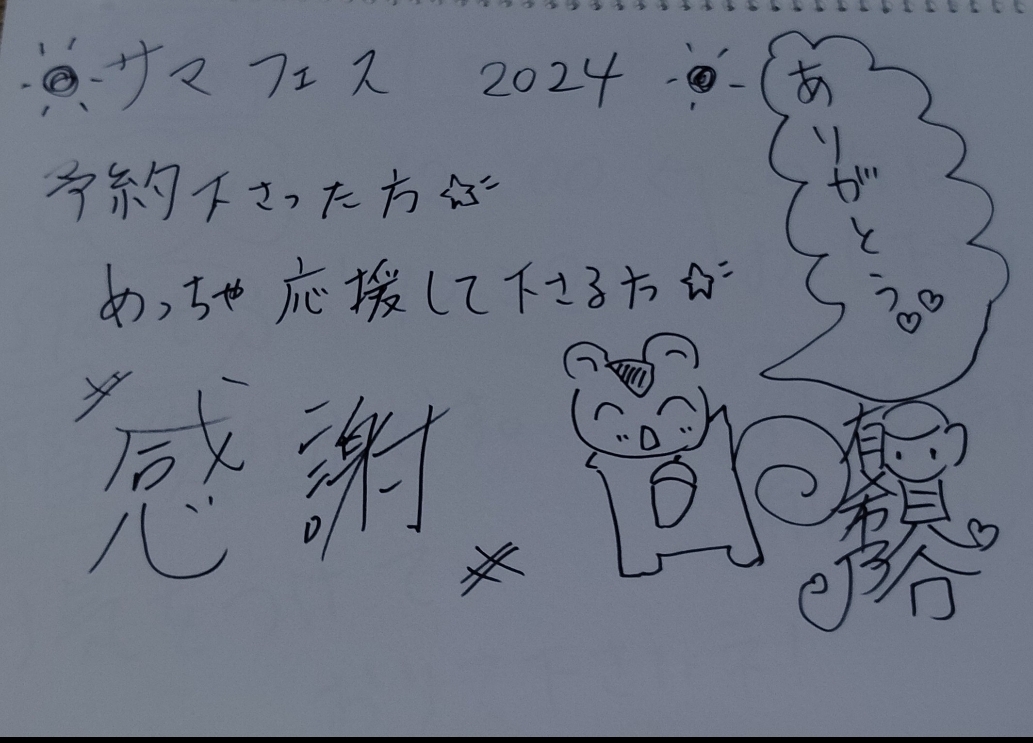 サマフェス 2024
予約下さった方☆
めっちゃ応援して下さる方☆
感謝
ありがとう♡♡